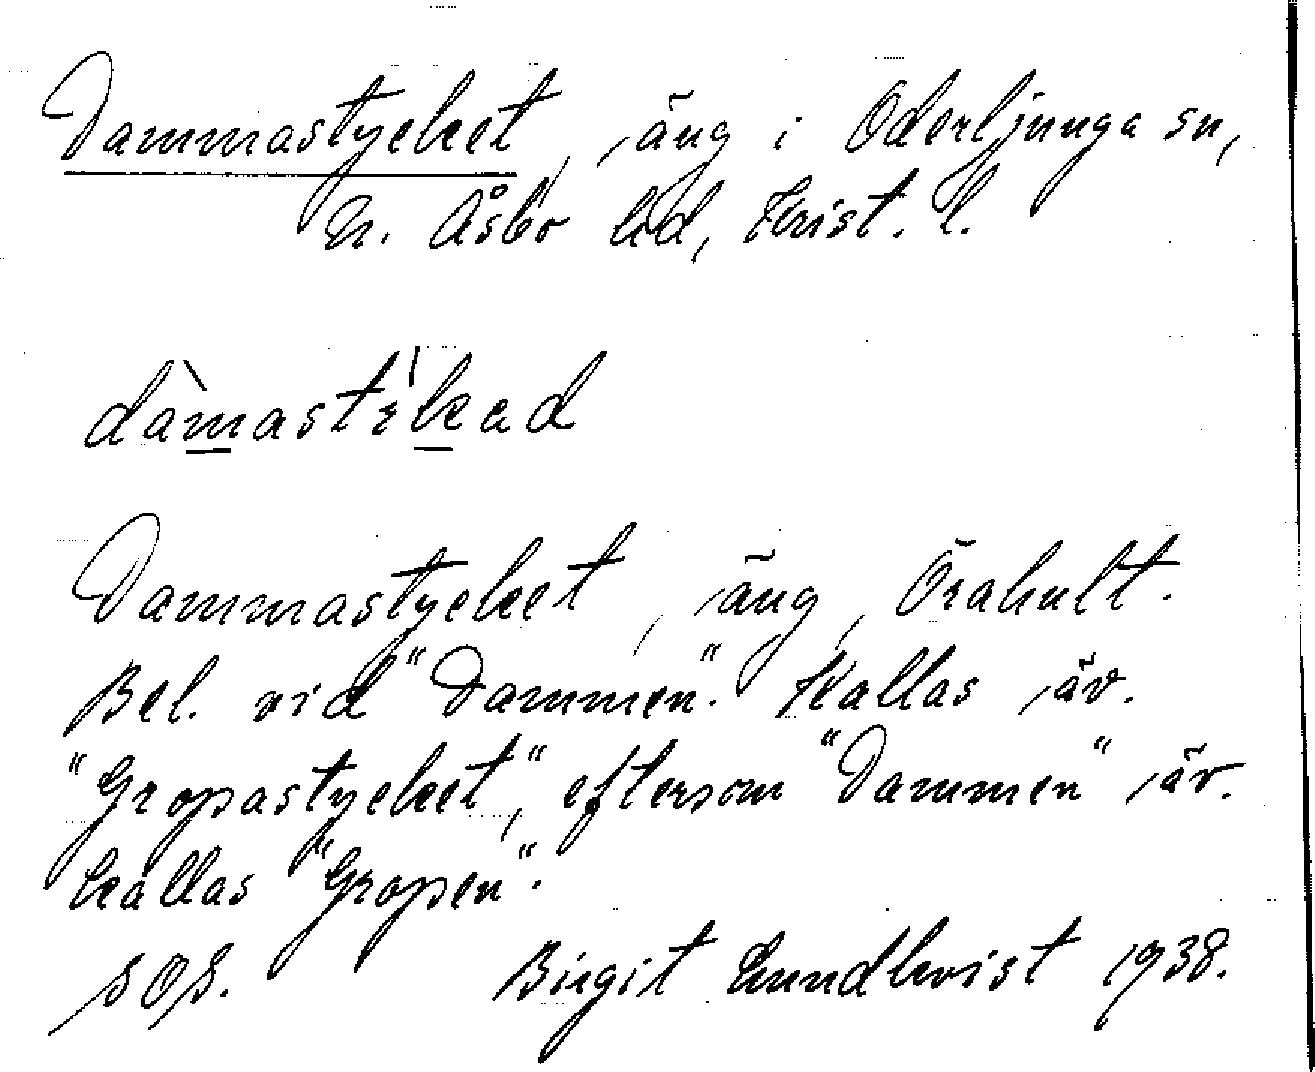 Dammastycket, äng i Oderljunga sn,
N. Åsbo hd, Krist. l.
dàmastʏ̍kad
Dammastycket, äng, Örahult.
Bel. vid "Dammen". Kallas äv.
"Gropastycket", eftersom "Dammen" äv.
kallas "Gropen".
SOS. Birgit Lundkvist 1938.